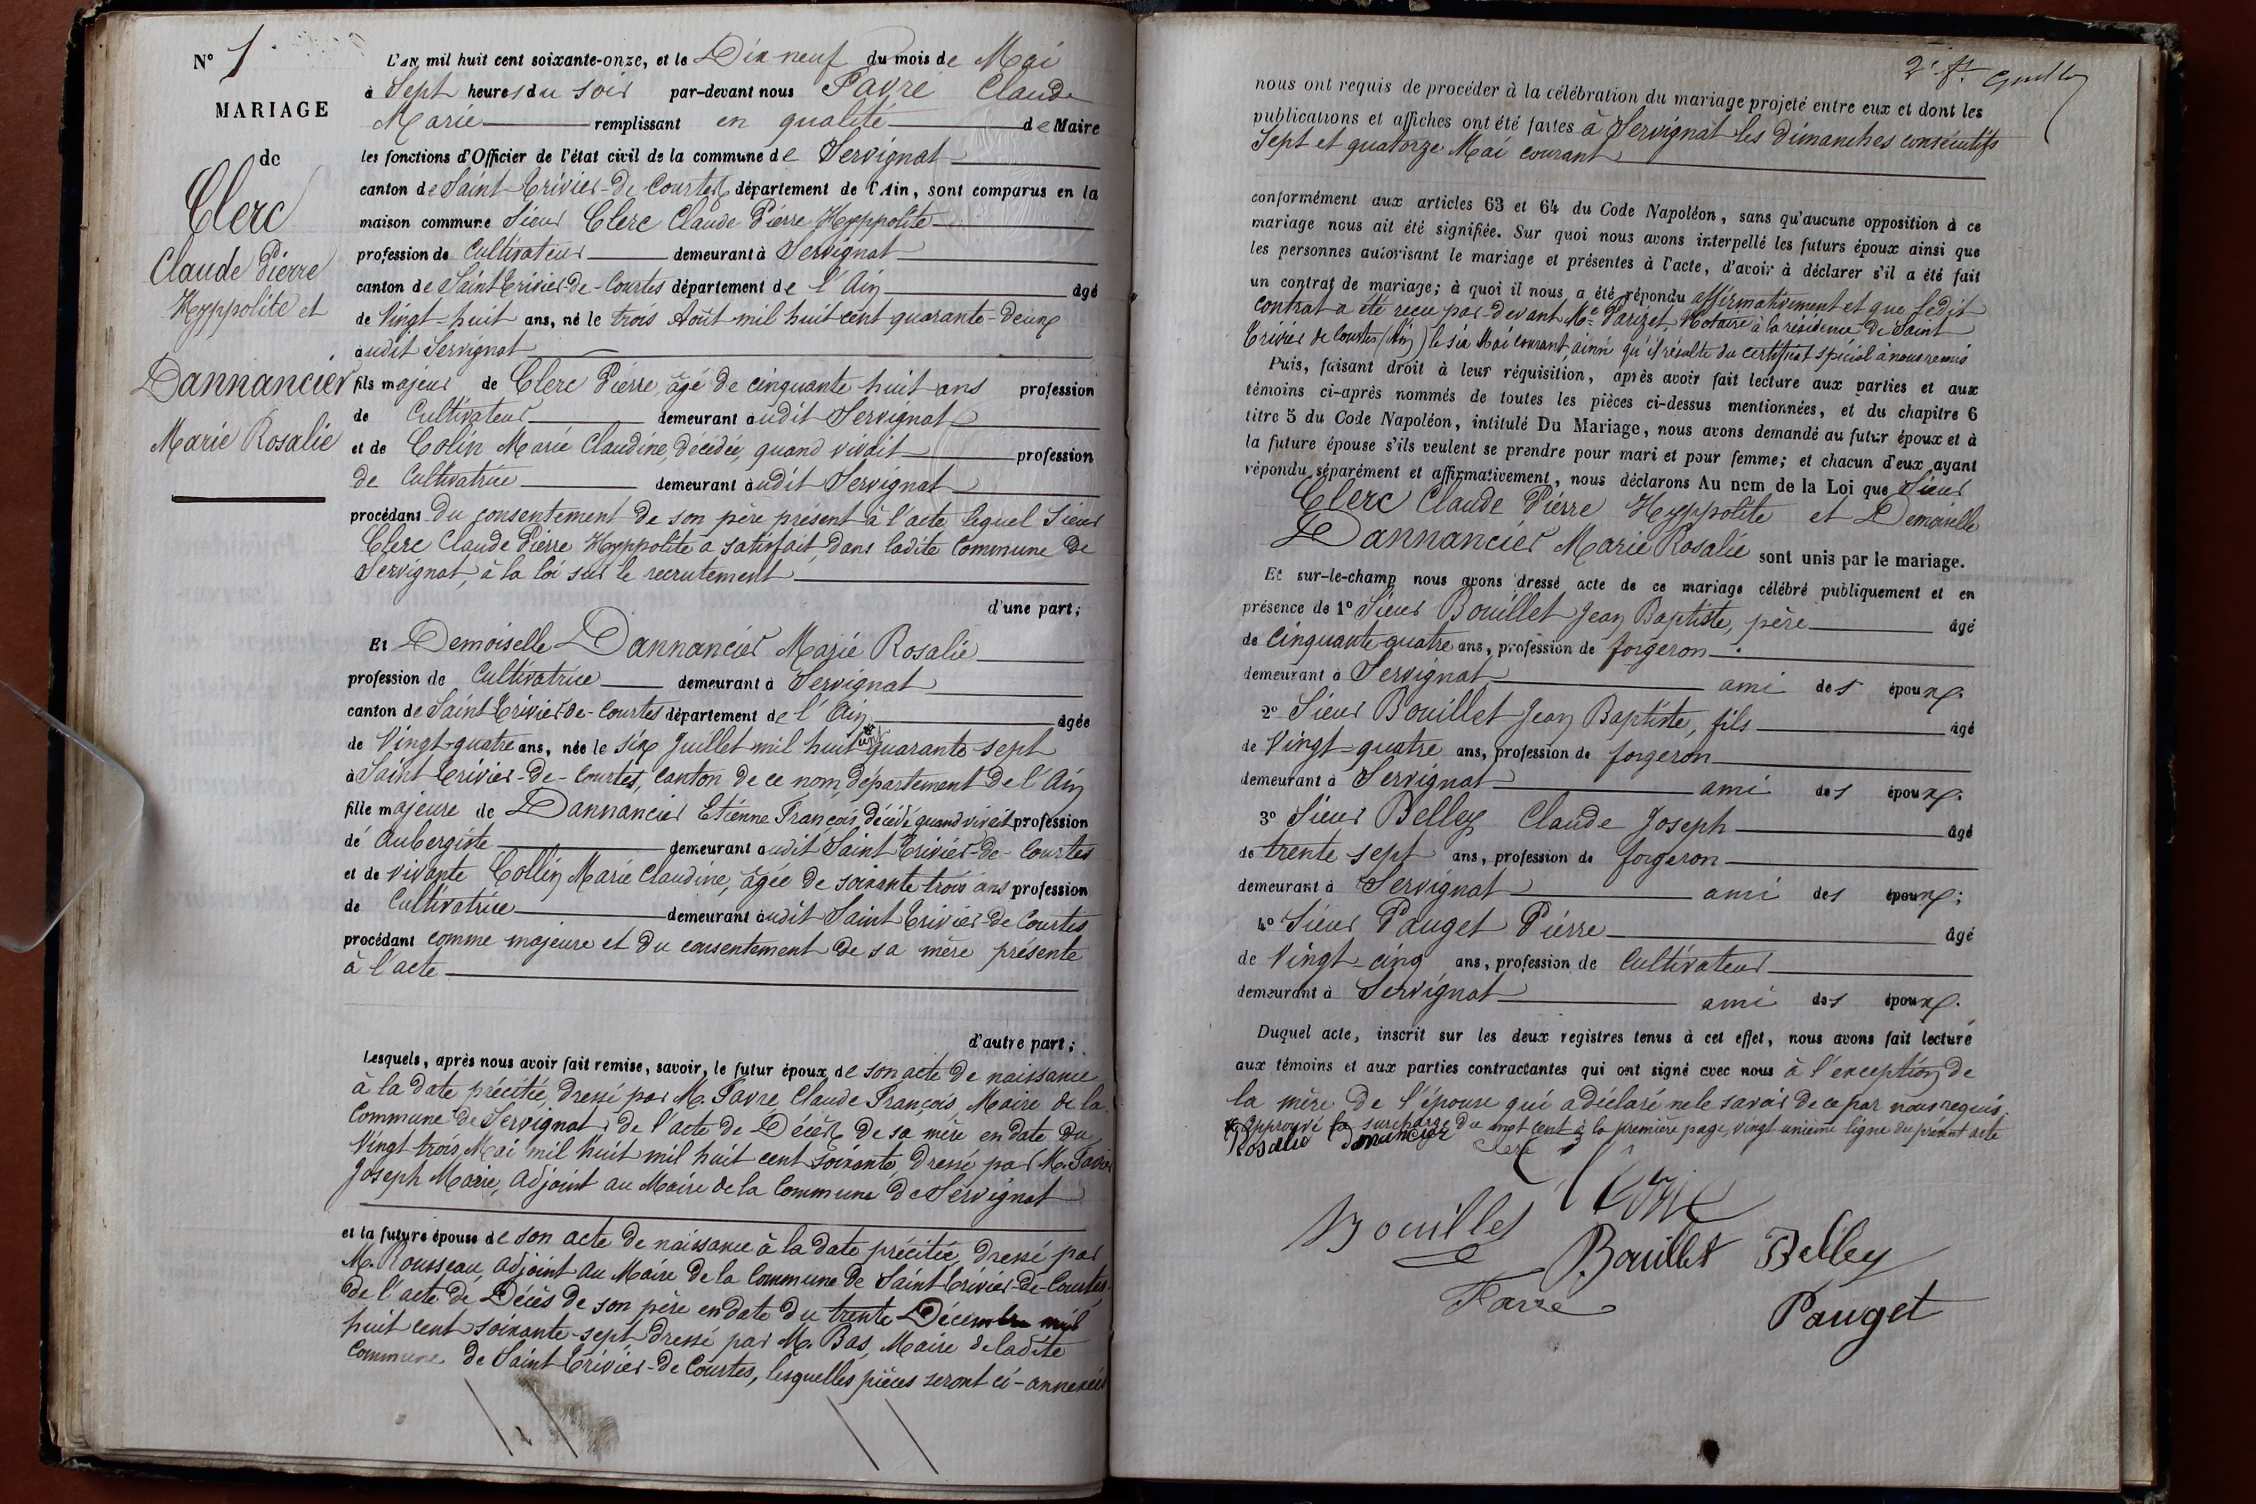 N° 1
MARIAGE
de
Clerc
Claude Pierre
Hyppolite et
Dannancier
Marie Rosalie
L'an mil huit cent soixante-onze, et le Dix neuf du mois de Mai
à Sept heures du soir par-devant nous Favre Claude
Marie remplissant en qualité de Maire
les fonctions d'Officier de l'état civil de la commune de Servignat
canton de Saint Trivier-de Courtes département de l'Ain, sont comparus en la
maison commune Sieur Clerc Claude Pierre Hyppolite
profession de Cultivateur demeurant à Servignat
canton de Saint Trivier-de-Courtes département de l'Ain âgé
de Vingt-huit ans, né le trois Août mil huit cent quarante-deux
audit Servignat
fils majeur de Clerc Pierre, âgé de cinquante huit ans profession
de Cultivateur demeurant audit Servignat
et de Colin Marie Claudine, décédée, quand vivait profession
de Cultivatrice demeurant audit Servignat
procédant du consentement de son père présent à l'acte lequel Sieur
Clerc Claude Pierre Hyppolite a satisfait, dans ladite Commune de
Servignat, à la loi sur le recrutement
d'une part;
Et Demoiselle Dannancier Marie Rosalie
profession de Cultivatrice demeurant à Servignat
canton de Saint Trivier-de-Courtes département de l'Ain âgée
de Vingt-quatre ans, née le six Juillet mil huit cent quarante-sept
à Saint Trivier-de-Courtes, Canton de ce nom, département de l'Ain
fille majeure de Dannancier Etienne François décédé quand vivait profession
de Aubergiste demeurant audit Saint Trivier-de-Courtes
et de vivante Collin Marie Claudine, âgée de soixante trois ans profession
de Cultivatrice demeurant audit Saint Trivier-de Courtes
procédant comme majeure et du consentement de sa mère présente
à l'acte
d'autre part;
Lesquels, après nous avoir fait remise, savoir, le futur époux de son acte de naissance
à la date précitée, dressé par M. Favre Claude François, Maire de la
Commune de Servignat, de l'acte de Décès de sa mère en date du
Vingt trois Mai mil huit mil huit cent soixante, dressé par M. Favre
Joseph Marie, adjoint au Maire de la Commune de Servignat
et la future épouse de son acte de naissance à la date précitée, dressé par
M. Rousseau, adjoint au Maire de la Commune de Saint Trivier-de-Courtes
de l'acte de Décès de son père en date du trente Décembre mil
huit cent soixante-sept, dressé par M. Bas, Maire de ladite
Commune de Saint Trivier-de Courtes, lesquelles pièces seront ci-annexées
2e ft.
nous ont requis de procéder à la célébration du mariage projeté entre eux et dont les
publications et affiches ont été faites à Servignat les dimanches consécutifs
Sept et quatorze Mai courant
conformément aux articles 63 et 64 du Code Napoléon, sans qu'aucune opposition à ce
mariage nous ait été signifiée. Sur quoi nous avons interpellé les futurs époux ainsi que
les personnes autorisant le mariage et présentes à l'acte, d'avoir à déclarer s'il a été fait
un contrat de mariage; à quoi il nous a été répondu affirmativement et que ledit
contrat a été reçu par-devant Me Parizet Notaire à la résidence de Saint
Trivier de Courtes (Ain) le six Mai courant, ainsi qu'il résulte du certificat spécial à nous remis
Puis, faisant droit à leur réquisition, après avoir fait lecture aux parties et aux
témoins ci-après nommés de toutes les pièces ci-dessus mentionnées, et du chapitre 6
titre 5 du Code Napoléon, intitulé Du Mariage, nous avons demandé au futur époux et à
la future épouse s'ils veulent se prendre pour mari et pour femme; et chacun d'eux ayant
répondu séparément et affirmativement, nous déclarons Au nom de la Loi que Sieur
Clerc Claude Pierre Hyppolite et Demoiselle
Dannancier Marie Rosalie sont unis par le mariage.
Et sur-le-champ nous avons dressé acte de ce mariage célébré publiquement et en
présence de 1° Sieur Bouillet Jean Baptiste, père âgé
de Cinquante quatre ans, profession de forgeron
demeurant à Servignat ami des époux.
2° Sieur Bouillet Jean Baptiste, fils âgé
de Vingt-quatre ans, profession de forgeron
demeurant à Servignat ami des époux.
3° Sieur Belley Claude Joseph âgé
de trente sept ans, profession de forgeron
demeurant à Servignat ami des époux;
4° Sieur Pauget Pierre âgé
de Vingt-cinq ans, profession de Cultivateur
demeurant à Servignat ami des époux.
Duquel acte, inscrit sur les deux registres tenus à cet effet, nous avons fait lecture
aux témoins et aux parties contractantes qui ont signé avec nous à l'exception de
la mère de l'épouse qui a déclaré ne le savoir de ce par nous requis.
approuvé la surcharge du mot cent à la première page, vingt unième ligne du présent acte
Rosalie Danancier Clerc
Clerc
Bouillet
Bouillet Belley
Favre
Pauget